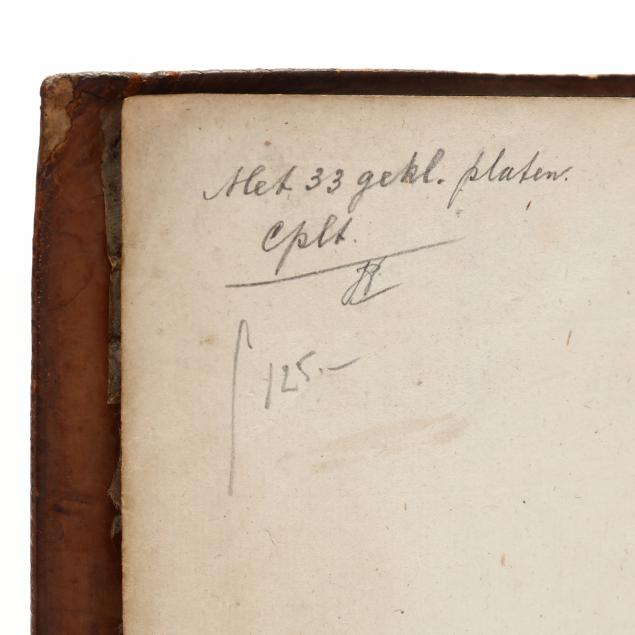 Met 33 gekl. platen.
Cplt.
ƒ 125.—